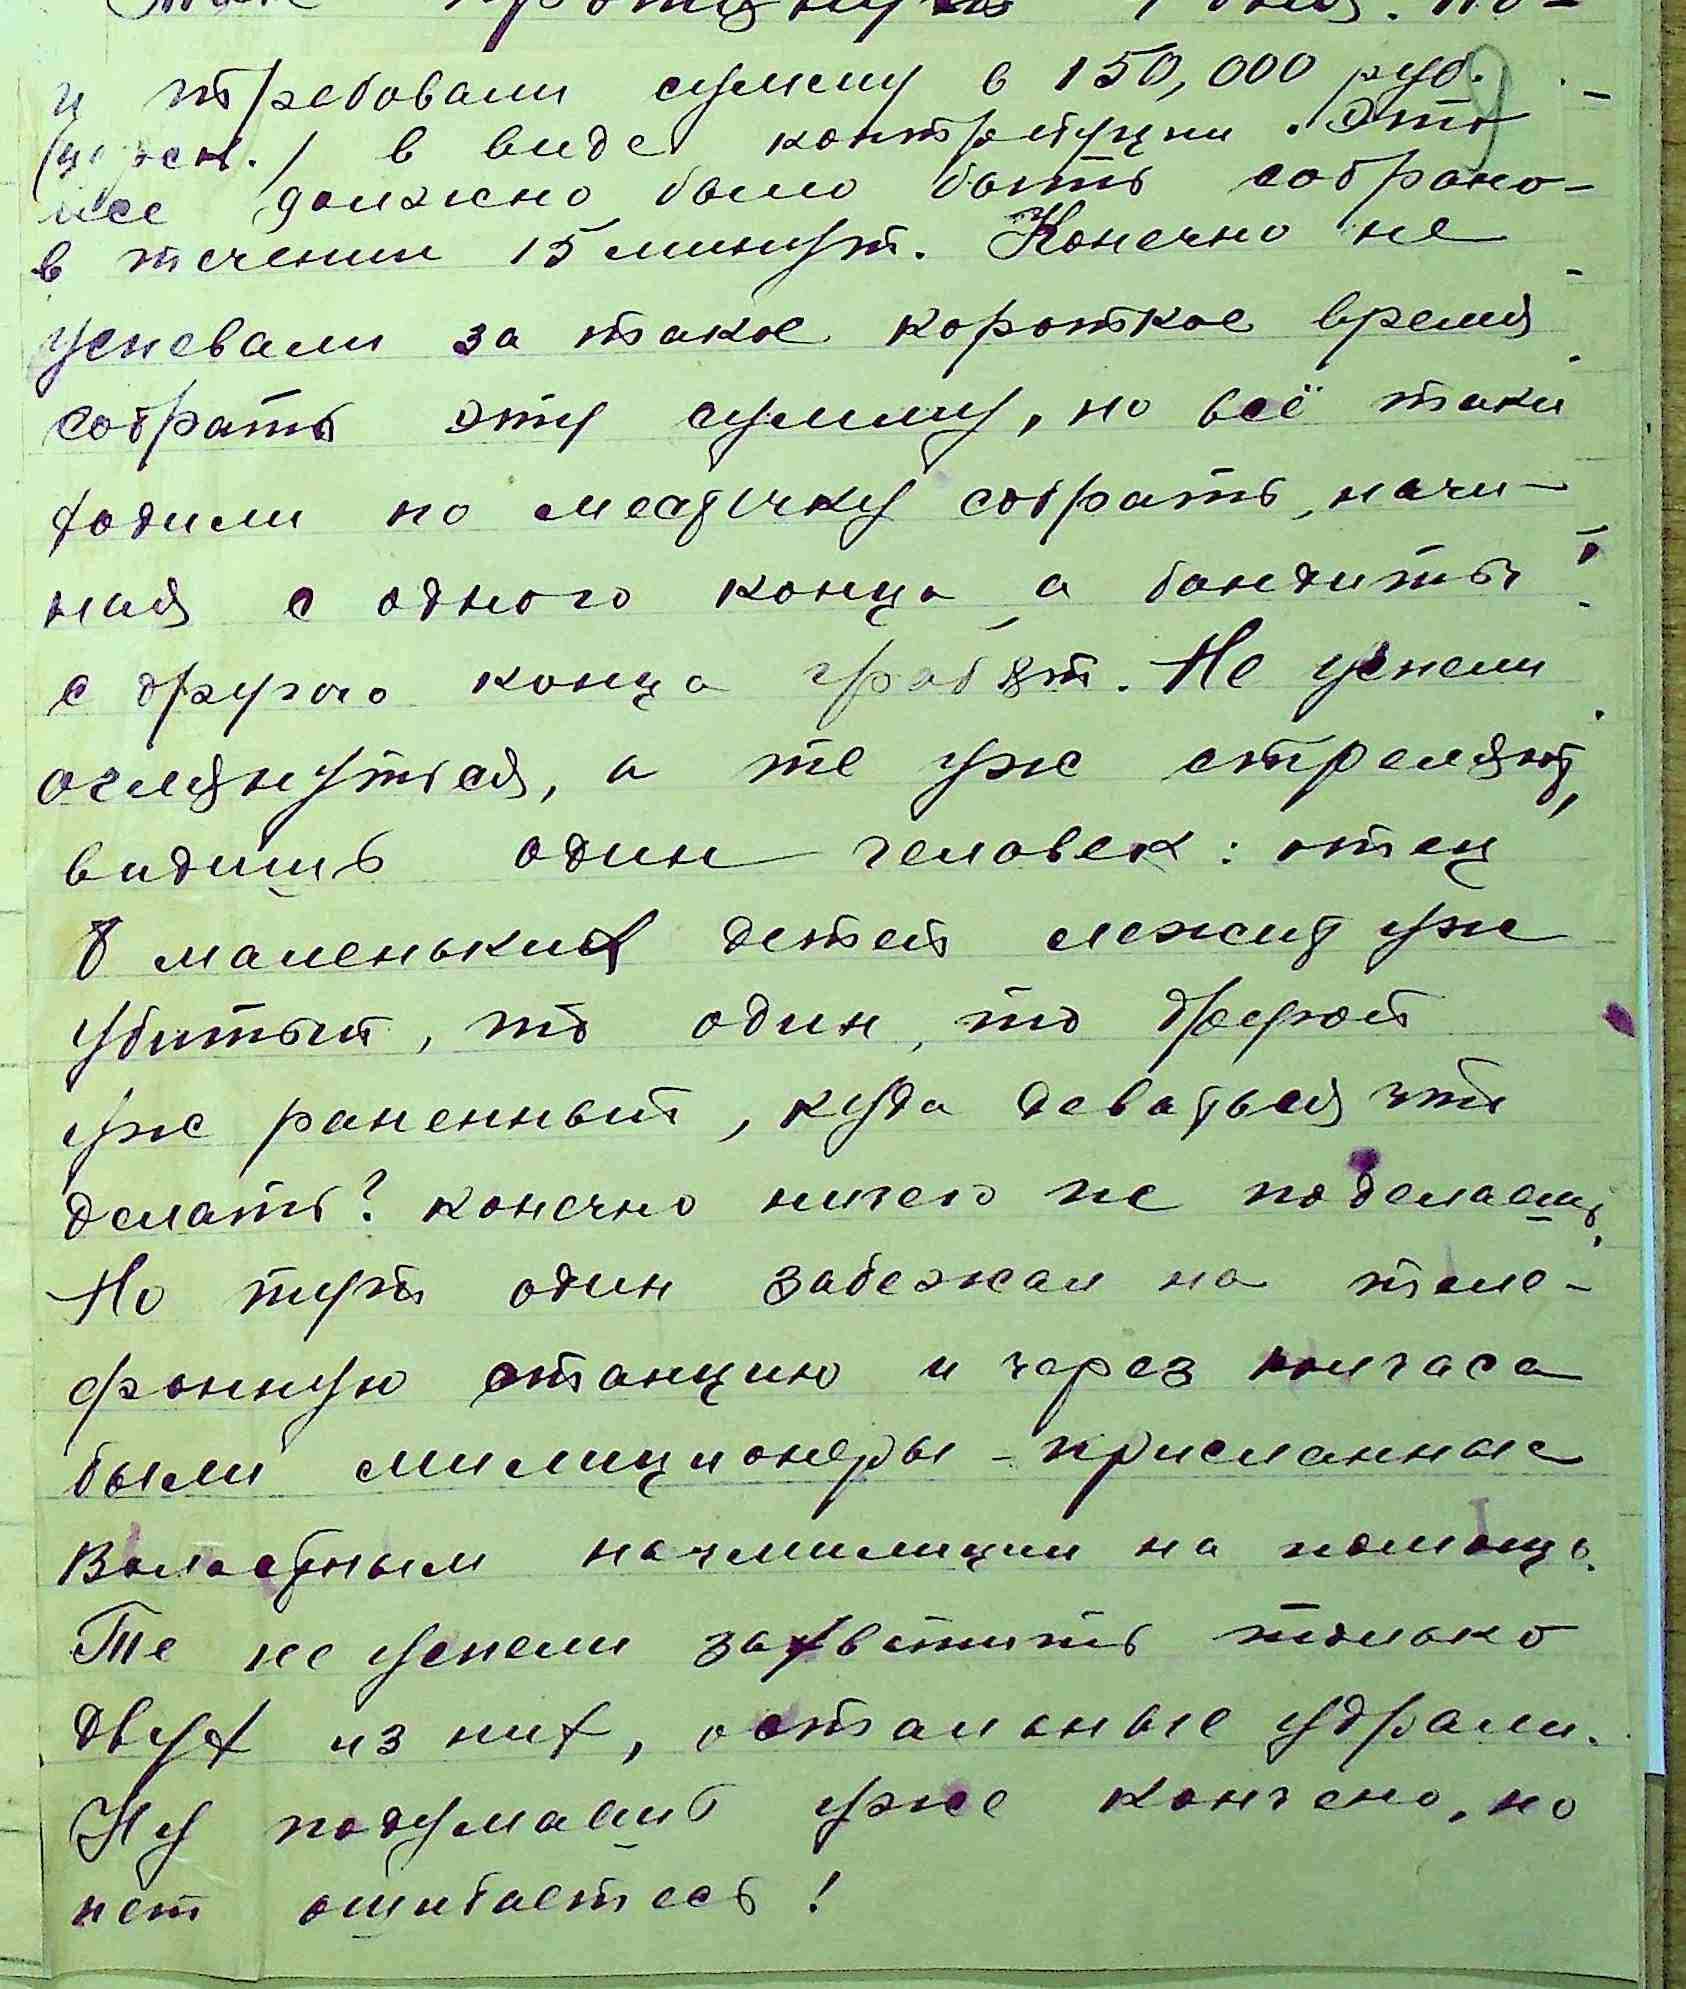 и требовали сумму в 150,000 руб.
(царск.) в виде контрибуции. Это
все должно было быть собрано
в течении 15 минут. Конечно не
успевали за такое короткое время
собрать эту сумму, но всё таки
ходили по местечку собрать, начи-
ная с одного конца, а бандиты
с другого конца грабят. Не успели
оглянуться, а те уж стреляют,
видишь один человек: отец
8 маленьких детей лежит уж
убитый, то один, то другой
уж раненный, куда деваться что
делать? конечно ничего не поделаешь.
Но тут один забежал на теле-
фонную станцию и через полчаса
были милиционеры - присланные
Волостным начмилиции на помощь.
Те не успели захватить только
двух из них, остальные удрали.
Ну подумаешь уже кончено, но
нет ошибаетесь!